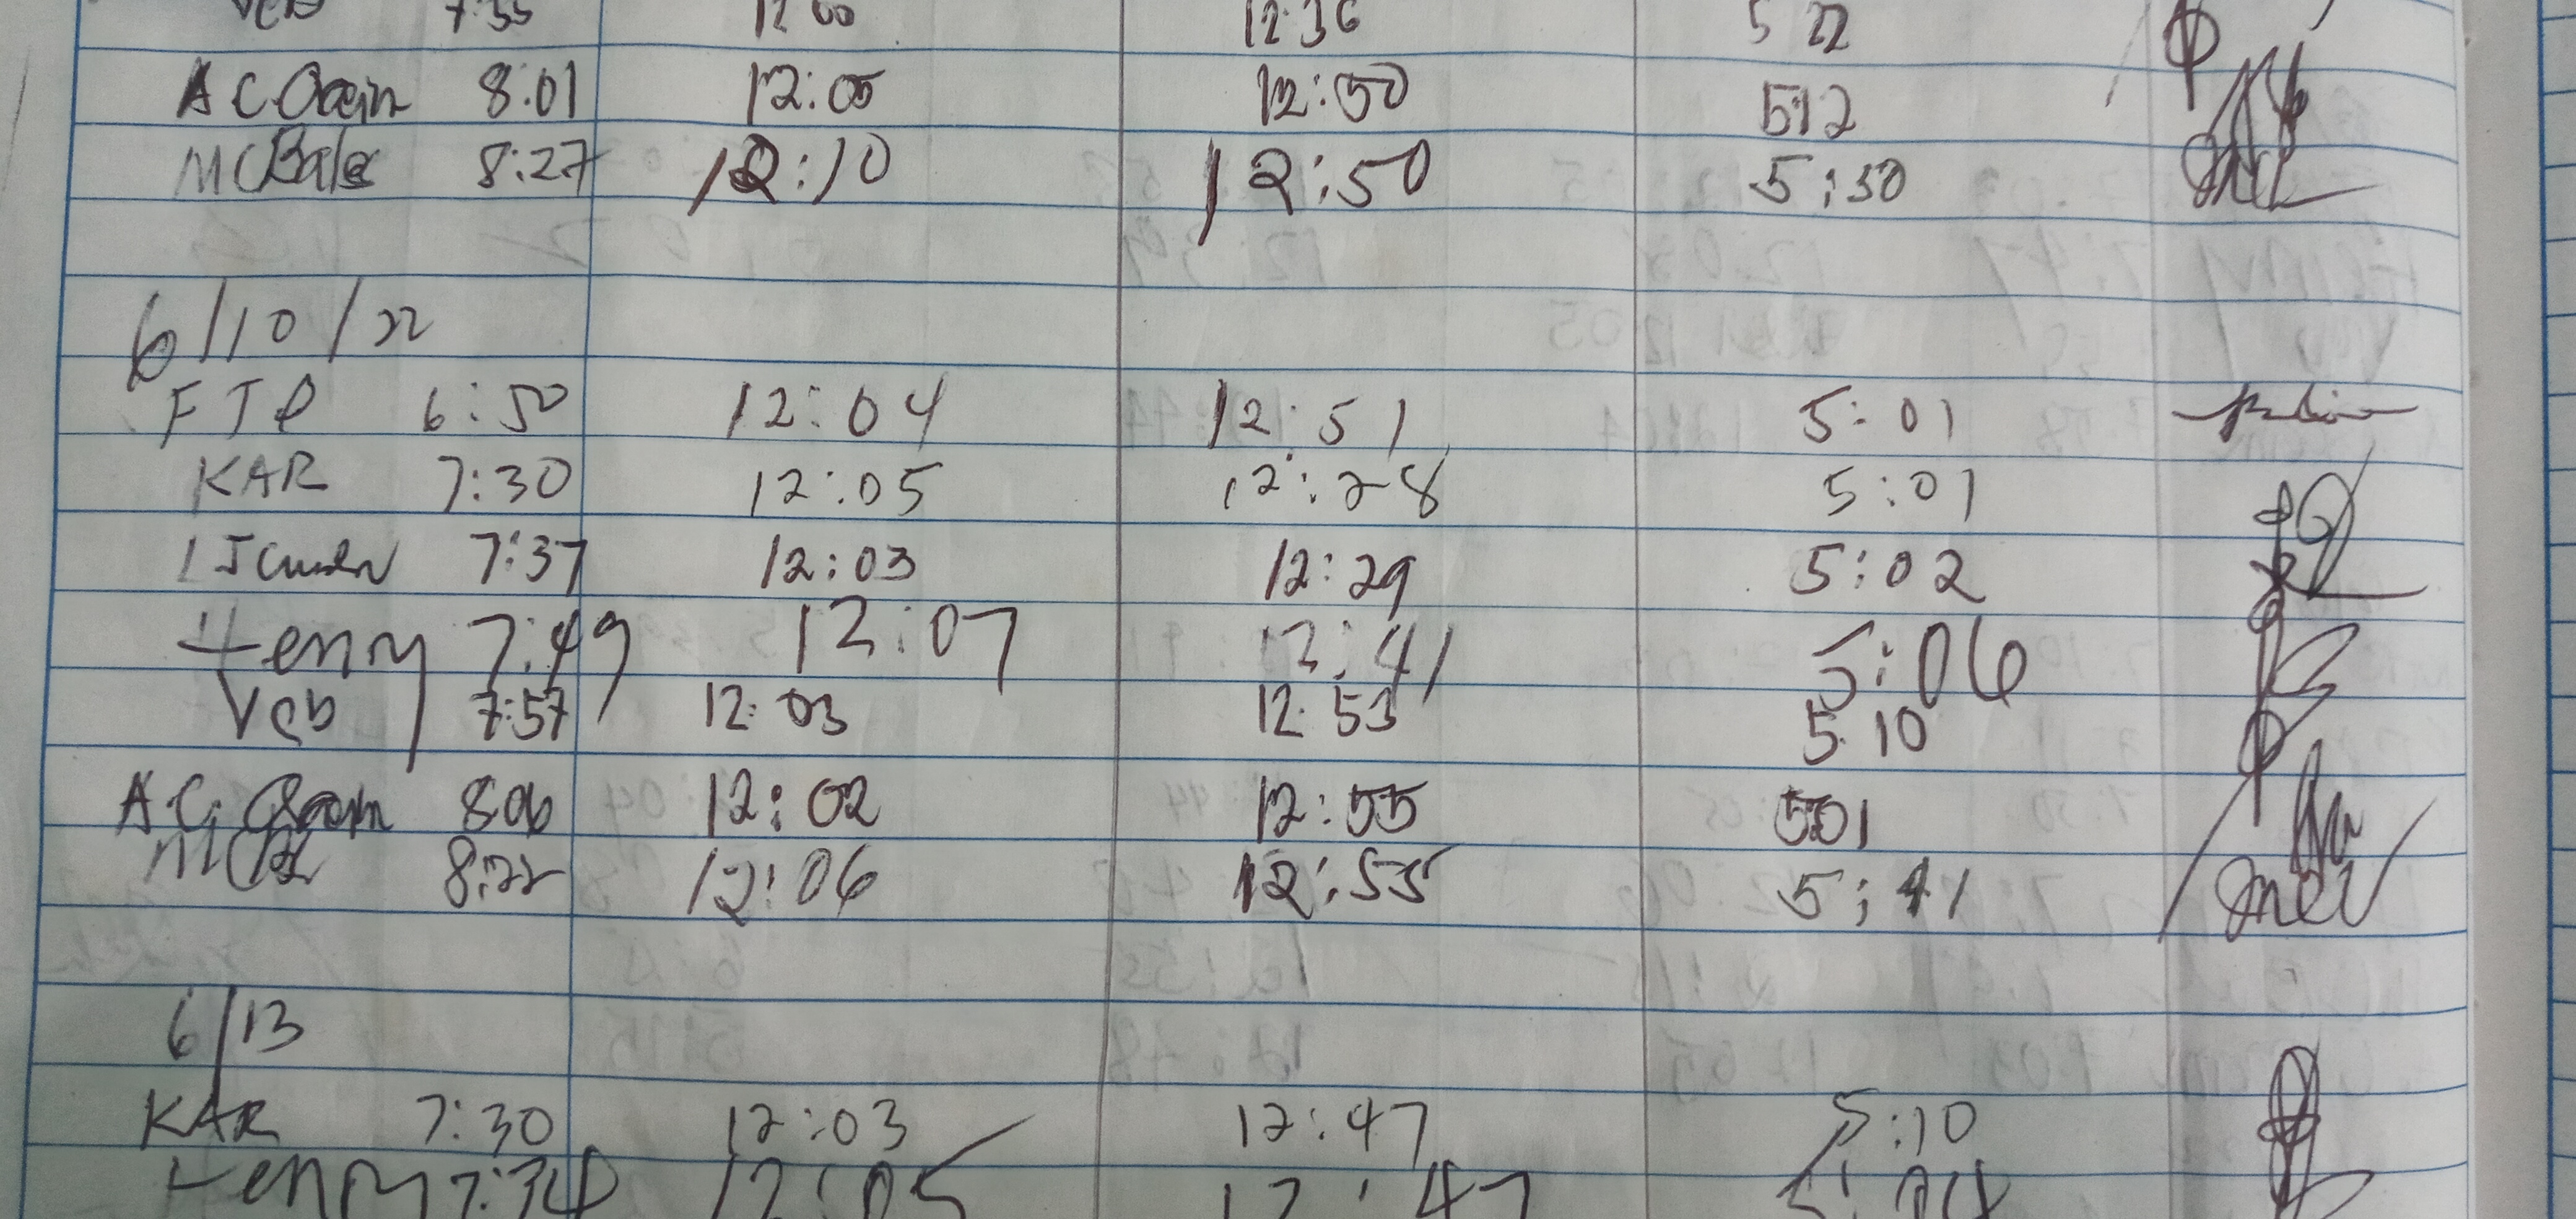 Veb 7:55 12 00 12:36 5 22
A C 8:01 12:05 12:50 512
8:27 12:10 12:50 5:30
6/10/22
FJP 6:50 12:04 12:51 5:01
KAR 7:30 12:05 12:28 5:01
7:37 12:03 12:29 5:02
Henry 7:49 12:07 12:41 5:06
Veb 7:57 12:03 12:53 5 10
A C. 806 12:02 12:55 501
8:22 12:06 12:55 5:41
6/13
KAR 7:30 12:03 12:47 5:10
Henry 12:05 12:47